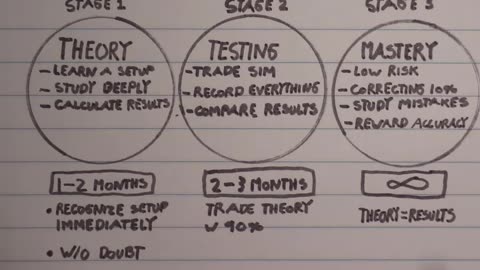 STAGE 1
THEORY
- LEARN A SETUP
- STUDY DEEPLY
- CALCULATE RESULTS
1-2 MONTHS
• RECOGNIZE SETUP
IMMEDIATELY
• W/O DOUBT
STAGE 2
TESTING
- TRADE SIM
- RECORD EVERYTHING
- COMPARE RESULTS
2-3 MONTHS
TRADE THEORY
W 90%
STAGE 3
MASTERY
- LOW RISK
- CORRECTING 10%
- STUDY MISTAKES
- REWARD ACCURACY
∞
THEORY = RESULTS